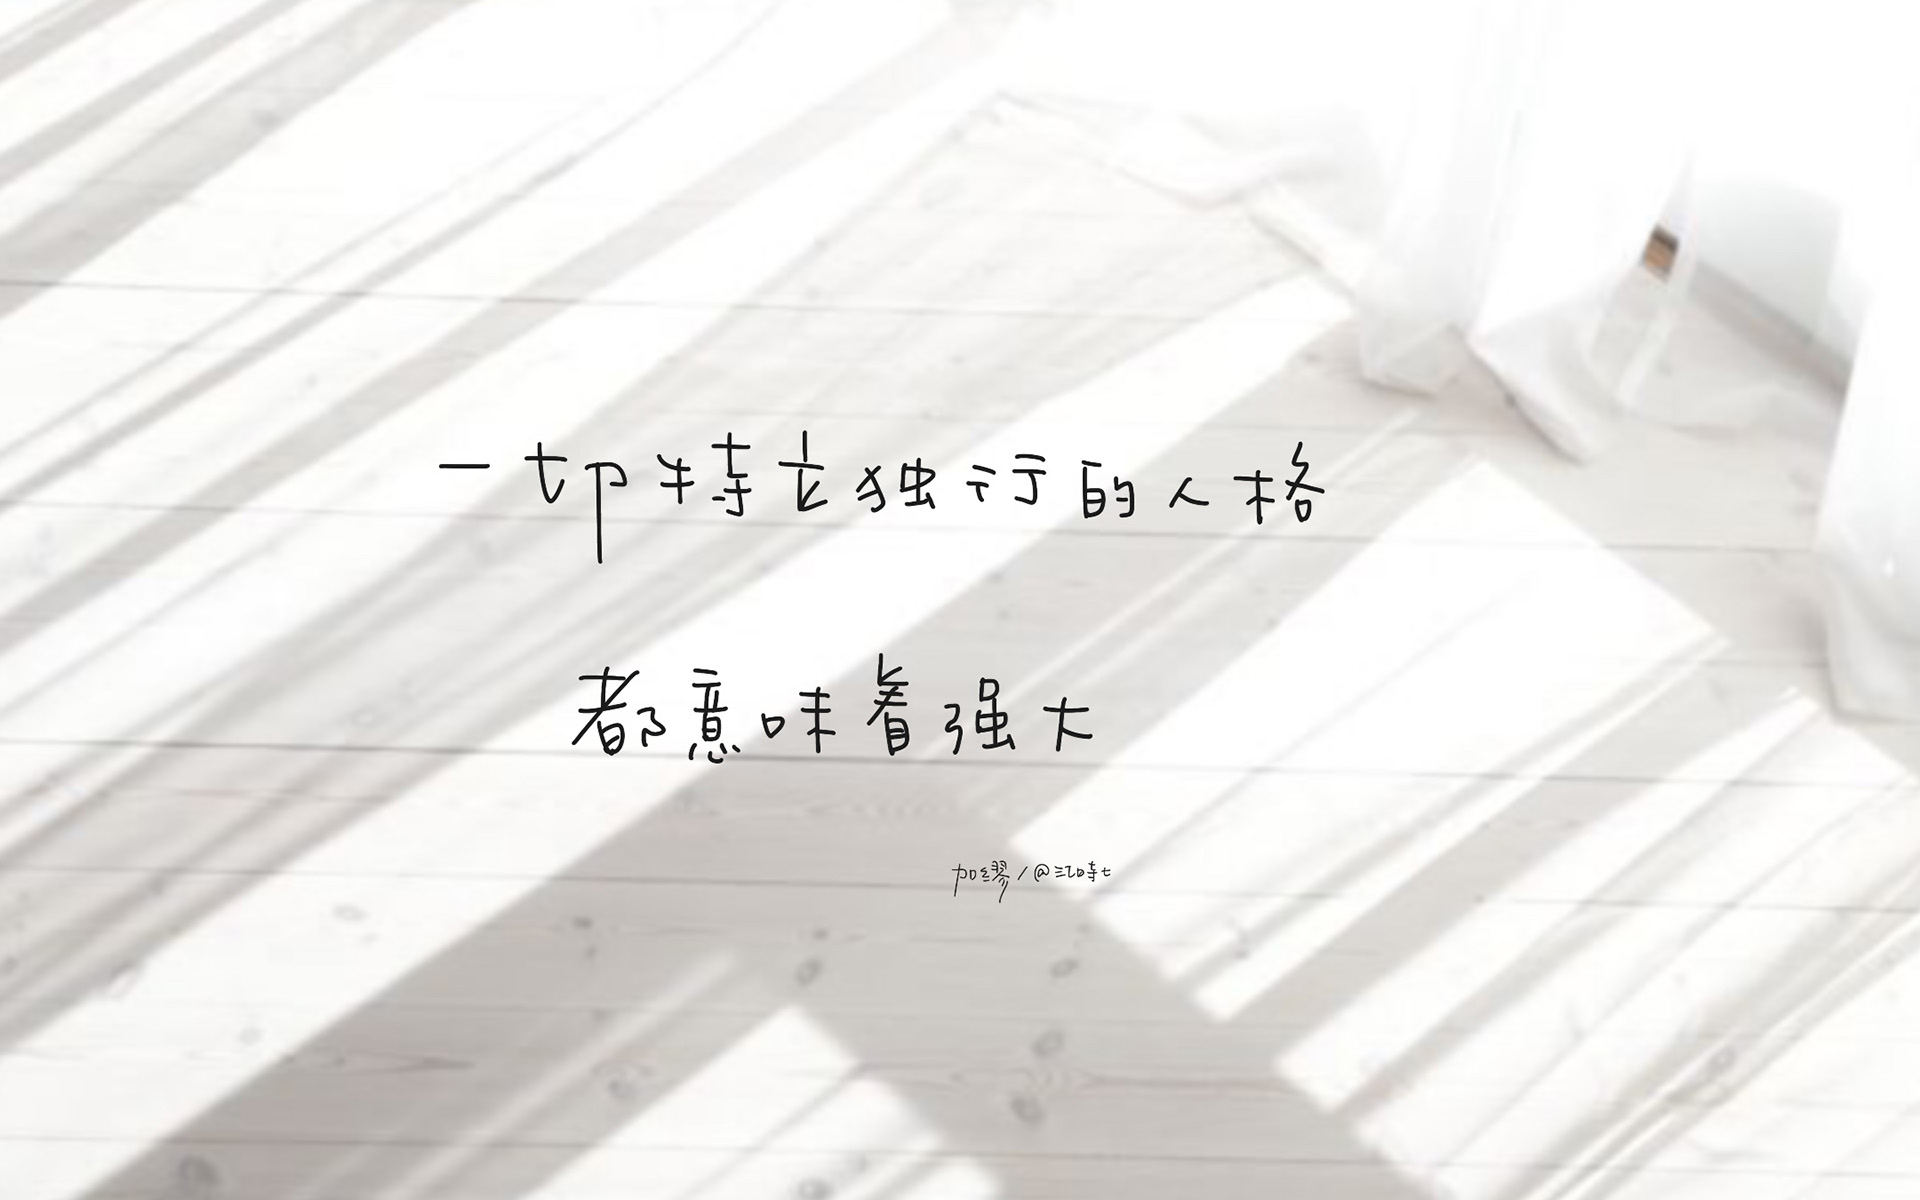 一切特立独行的人格
都意味着强大
加缪/@江时七